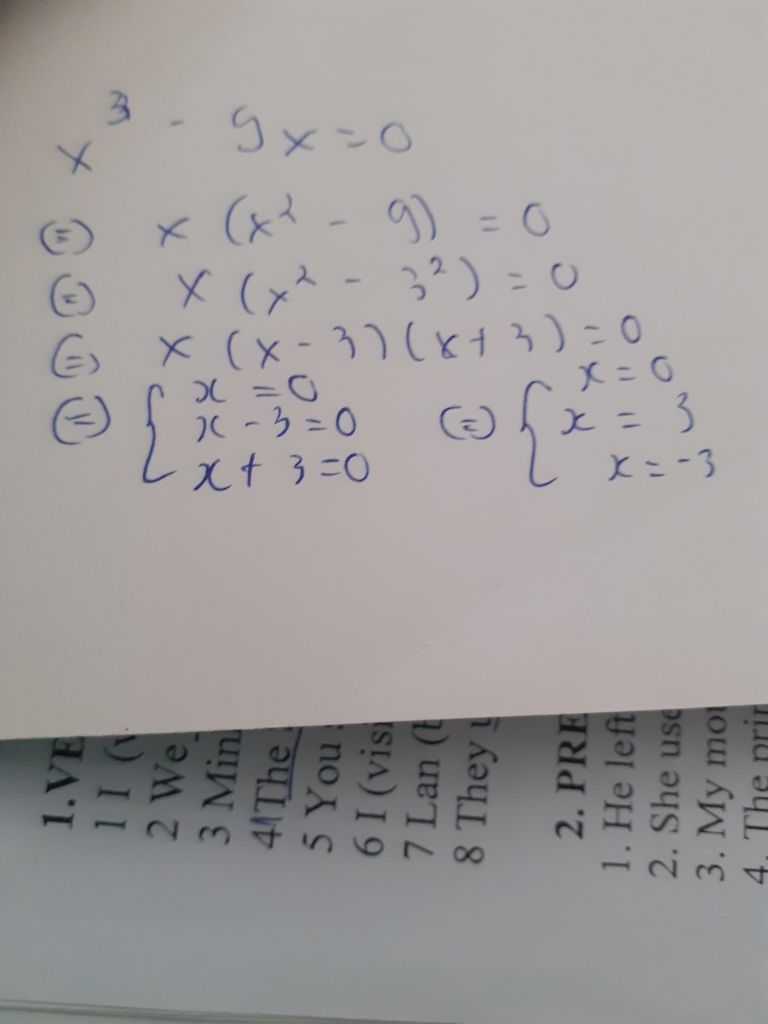 x³ - 9x = 0
⇔ x (x² - 9) = 0
⇔ x (x² - 3²) = 0
⇔ x (x - 3) (x + 3) = 0
⇔ { x = 0
x - 3 = 0
x + 3 = 0
⇔ { x = 0
x = 3
x = -3
1. VE
1 I (v
2 We
3 Min
4 The
5 You
6 I (visi
7 Lan (
8 They
2. PRE
1. He left
2. She use
3. My mo
4. The prin